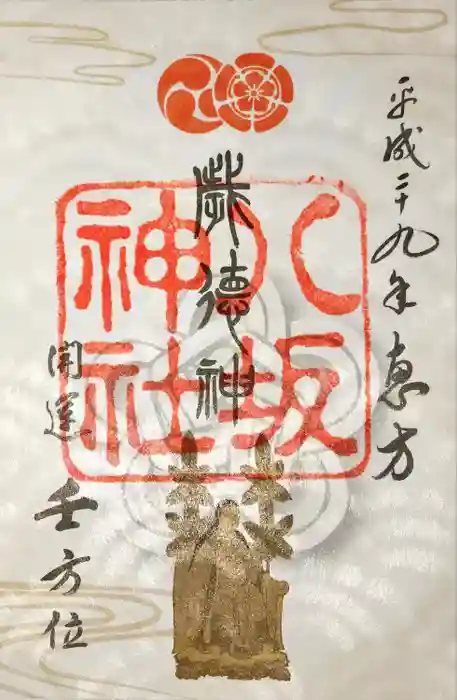 平成二十九年 恵方
歳德神
八坂
神社
開運 壬方位